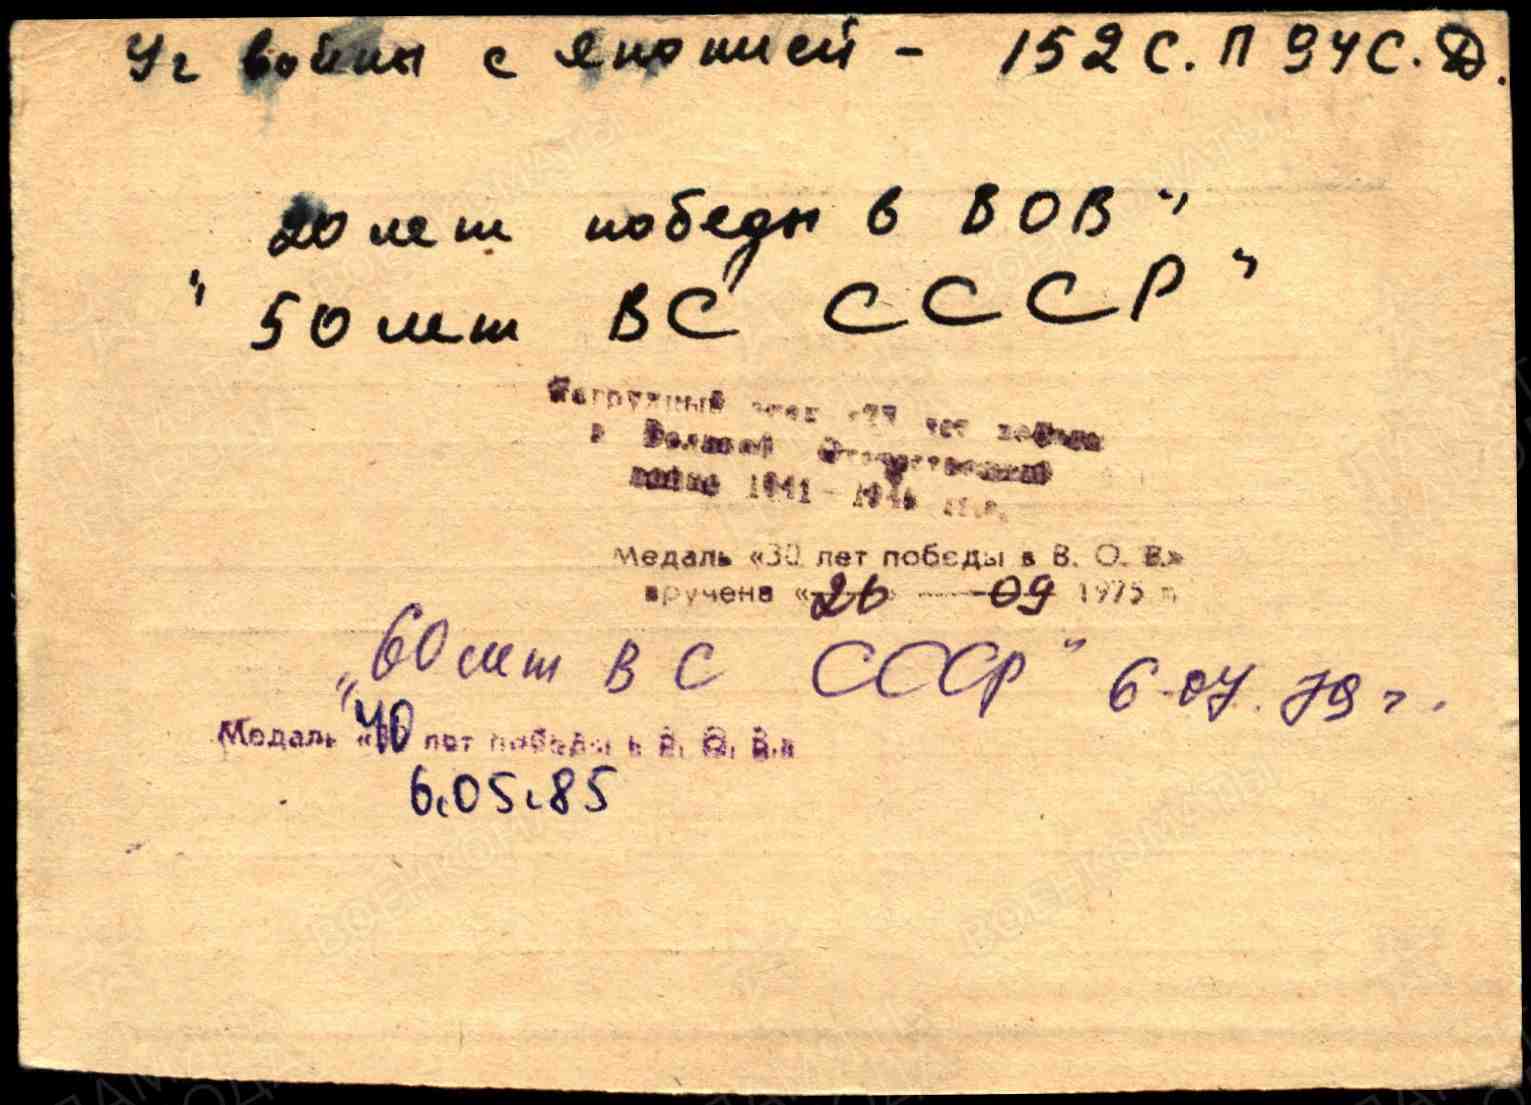 Уч войны с Японией - 152 С.П 94 С.Д.
20 лет победы в ВОВ"
"50 лет ВС СССР"
Нагрудный знак «25 лет победы
в Великой Отечественной
войне 1941-1945 гг.
Медаль «30 лет победы в В. О. В.»
вручена «26» 09 1975 г
"60 лет ВС СССР" 6-07.79 г.
Медаль «40 лет победы в В. О. В.»
6.05.85
ВОЕНКОМАТЫ
ВОЕНКОМАТЫ